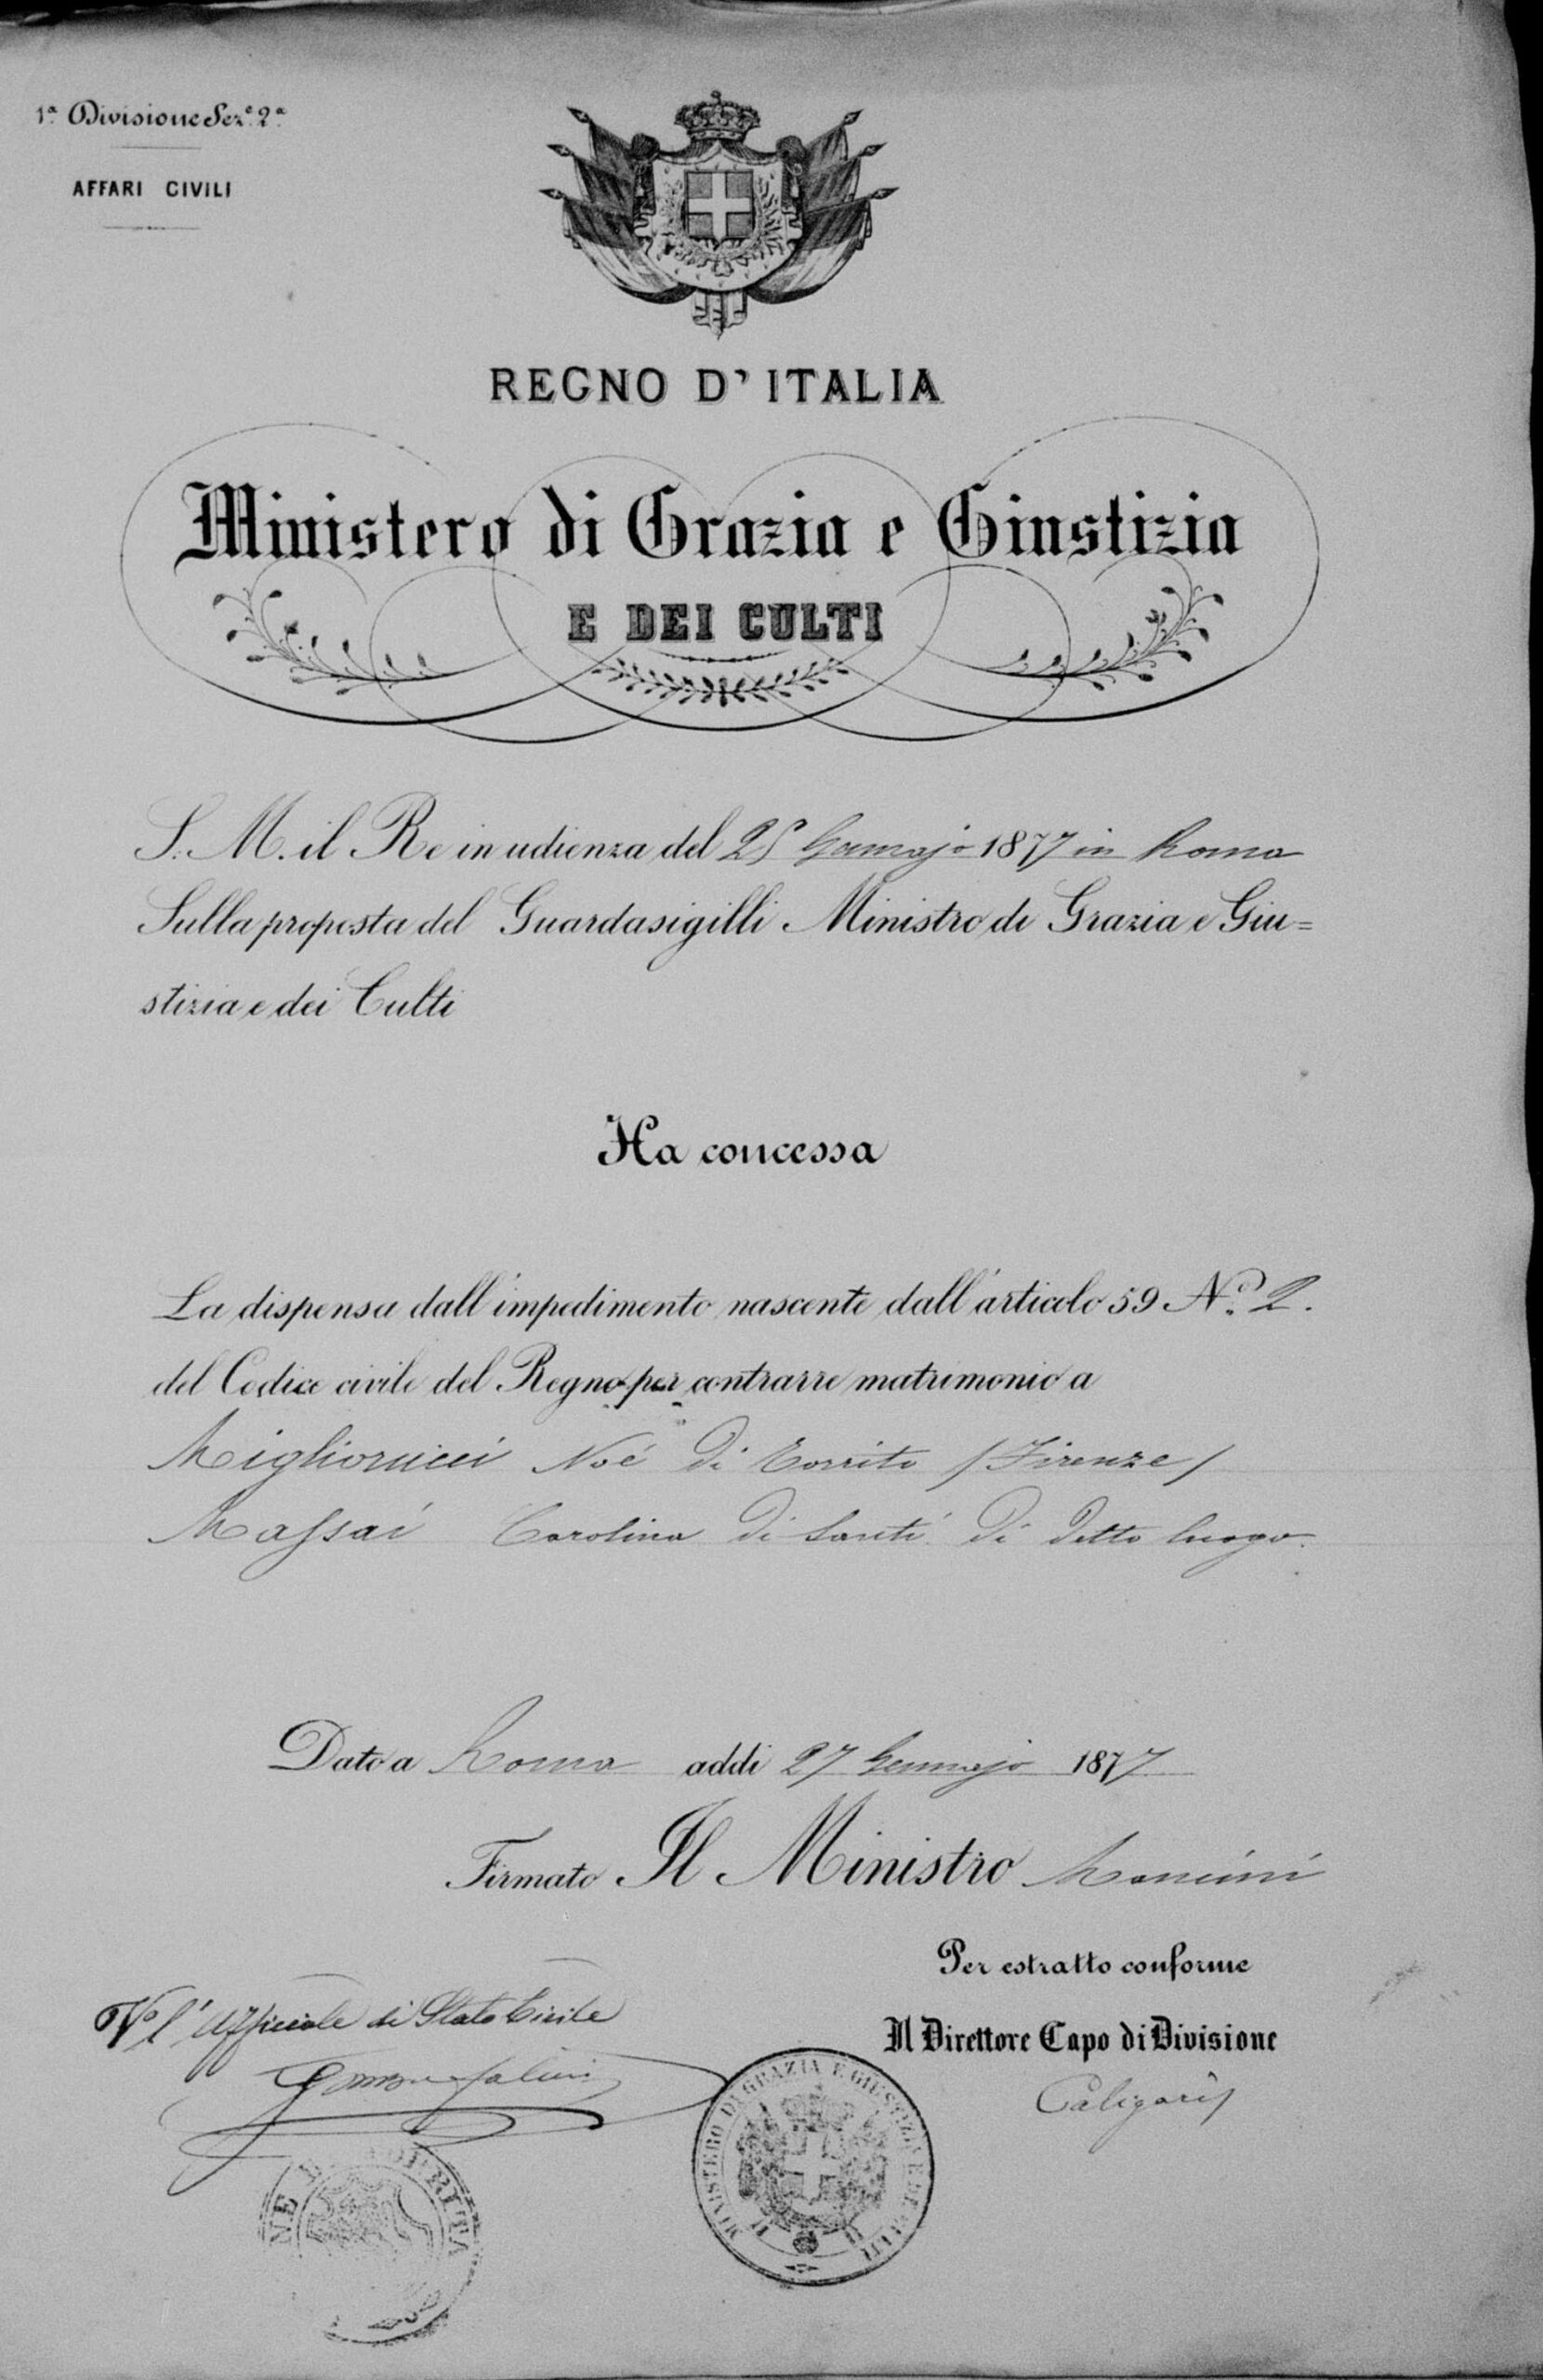 1.ª Divisione Sez.e 2.ª
AFFARI CIVILI
REGNO D'ITALIA
Ministero di Grazia e Giustizia
E DEI CULTI
S. M. il Re in udienza del 25 Gennajo 1877 in Roma
Sulla proposta del Guardasigilli Ministro di Grazia e Giu=
stizia e dei Culti
Ha concessa
La dispensa dall'impedimento nascente dall'articolo 59 N.º 2.
del Codice civile del Regno per contrarre matrimonio a
Migliorucci Noé di (Firenze)
Massai Carolina di Santi di detto luogo.
Dato a Roma addi 27 Gennajo 1877
Firmato Il Ministro Mancini
Per estratto conforme
Vº l'Ufficiale di Stato Civile
Il Direttore Capo di Divisione
Caligaris
MINISTERO DI GRAZIA E GIUSTIZIA E DEI CULTI